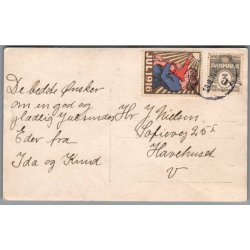 JUL 1916
DANMARK
3
De bedste Ønsker
om en god og
glædlig Julesøndag
Eder fra
Ida og Knud
Hr. J Nielsen
Sofievej 25
Havehuset
V